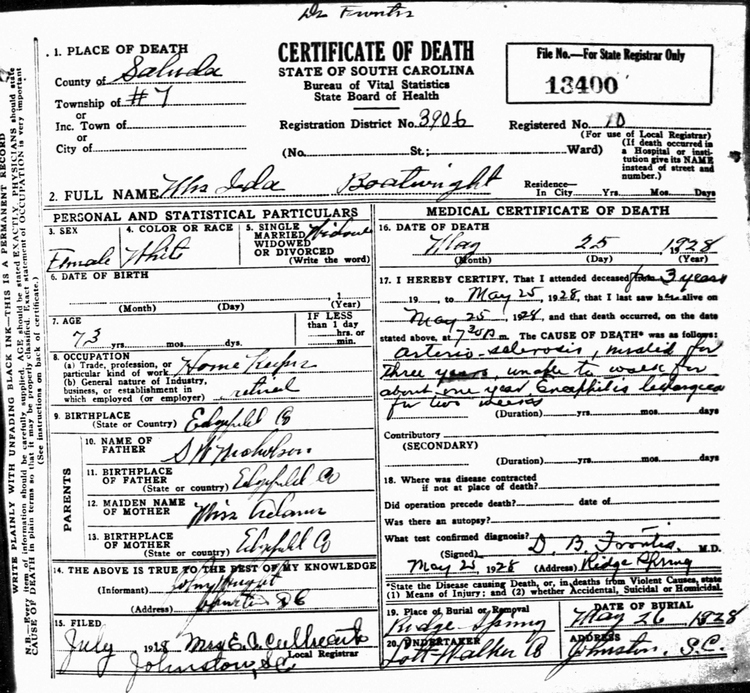 Dr Frontis
1. PLACE OF DEATH
County of Saluda
Township of #7
or
Inc. Town of
or
City of
CERTIFICATE OF DEATH
STATE OF SOUTH CAROLINA
Bureau of Vital Statistics
State Board of Health
Registration District No. 3906
File No.—For State Registrar Only
13400
Registered No. 10
(For use of Local Registrar)
(No. St.; Ward)
(If death occurred in
a Hospital or insti-
tution give its NAME
instead of street and
number.)
2. FULL NAME Mrs Ida Boatwright
Residence—
In City Yrs. Mos. Days
PERSONAL AND STATISTICAL PARTICULARS
3. SEX
Female
4. COLOR OR RACE
White
5. SINGLE
MARRIED
WIDOWED
OR DIVORCED
(Write the word)
Widow
6. DATE OF BIRTH
1
(Month) (Day) (Year)
7. AGE
73 yrs. mos. days
IF LESS
than 1 day
hrs. or
min.
8. OCCUPATION
(a) Trade, profession, or
particular kind of work Home Keeper
(b) General nature of Industry,
business, or establishment in
which employed (or employer) retired
9. BIRTHPLACE
(State or Country) Edgefield Co
PARENTS
10. NAME OF
FATHER S W Nicholson
11. BIRTHPLACE
OF FATHER Edgefield Co
(State or country)
12. MAIDEN NAME
OF MOTHER Miss Adams
13. BIRTHPLACE
OF MOTHER Edgefield Co
(State or country)
14. THE ABOVE IS TRUE TO THE BEST OF MY KNOWLEDGE
(Informant)
(Address) Johnston SC
15. FILED
July 1928 Mrs E. A.
Local Registrar
Johnston, SC
MEDICAL CERTIFICATE OF DEATH
16. DATE OF DEATH
May 25 1928
(Month) (Day) (Year)
17. I HEREBY CERTIFY, That I attended deceased for 3 years
19 to May 25, 1928, that I last saw her alive on
May 25, 1928, and that death occurred, on the date
stated above, at 7 30 P m. The CAUSE OF DEATH* was as follows:
arterio-sclerosis, for
three years, unable to walk for
about one year
for two weeks
(Duration) yrs. mos. days
Contributory
(SECONDARY)
(Duration) yrs. mos. days
18. Where was disease contracted
if not at place of death?
Did operation precede death? date of
Was there an autopsy?
What test confirmed diagnosis?
(Signed) D. B. Frontis M.D.
May 25, 1928 (Address) Ridge Spring
*State the Disease causing Death, or, in deaths from Violent Causes, state
(1) Means of Injury; and (2) whether Accidental, Suicidal or Homicidal.
19. Place of Burial or Removal
Ridge Spring
DATE OF BURIAL
May 26 1928
20. UNDERTAKER
Lott-Walker Co
ADDRESS
Johnston, S.C.
WRITE PLAINLY WITH UNFADING BLACK INK—THIS IS A PERMANENT RECORD
N.B.—Every item of information should be carefully supplied. AGE should be stated EXACTLY. PHYSICIANS should state
CAUSE OF DEATH in plain terms so that it may be properly classified. Exact statement of OCCUPATION is very important
(See instructions on back of certificate.)